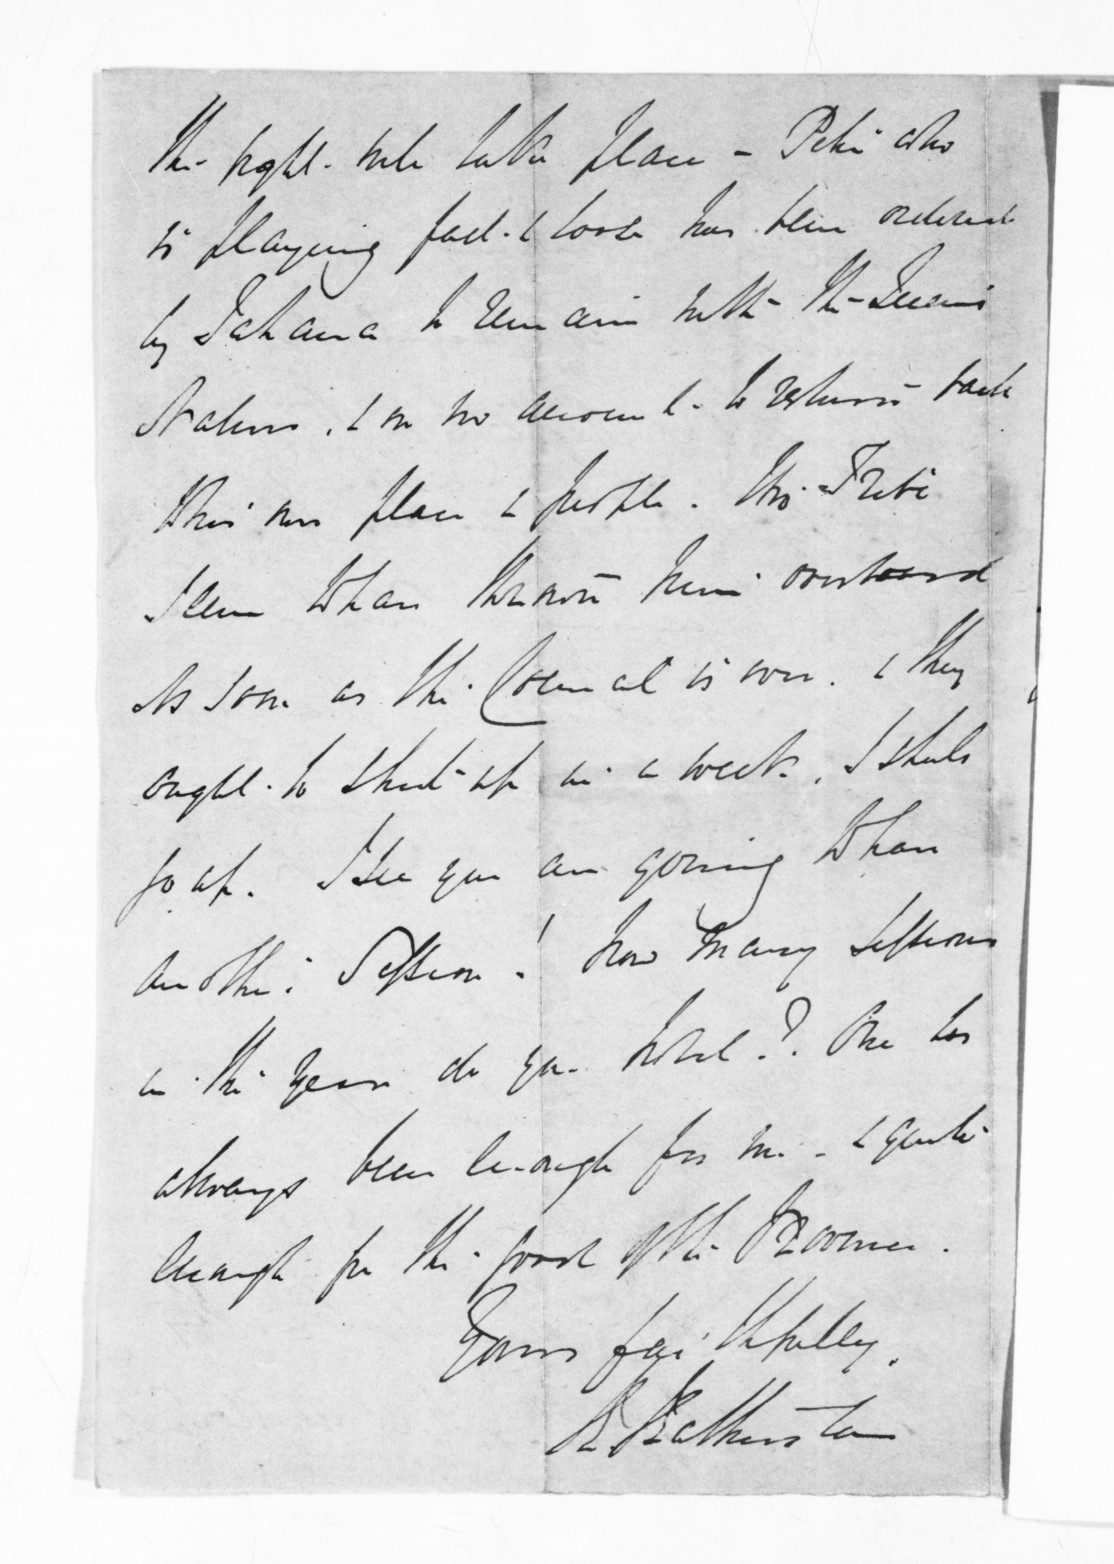 the fight will take place - Pehi who
is playing fast & loose has been ordered
by Tahana to remain with the
& on no account to return back
this place & people. His Tribe
seem to have thrown him overboard
As soon as the Council is over. & they
ought to shut up in a week, I shall
go up. I see you are going to have
another Session! how many Sessions
in the year do you hold? One has
always been enough for me - & quite
enough for the good of the Province.
Yours faithfully,